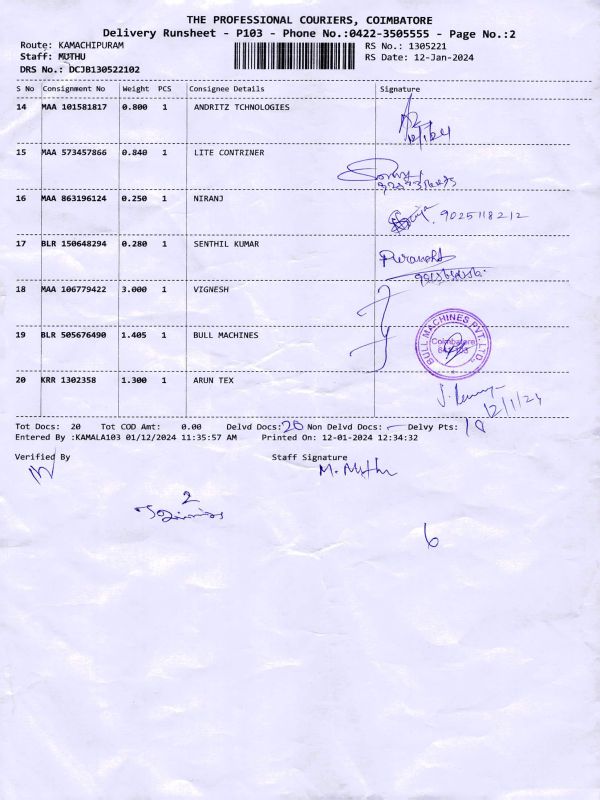 THE PROFESSIONAL COURIERS, COIMBATORE
Delivery Runsheet - P103 - Phone No.:0422-3505555 - Page No.:2
Route: KAMACHIPURAM RS No.: 1305221
Staff: MUTHU RS Date: 12-Jan-2024
DRS No.: DCJB130522102
S No Consignment No Weight PCS Consignee Details Signature
14 MAA 101581817 0.800 1 ANDRITZ TCHNOLOGIES
12/1/24
15 MAA 573457866 0.840 1 LITE CONTRINER
16 MAA 863196124 0.250 1 NIRANJ
9025118212
17 BLR 150648294 0.280 1 SENTHIL KUMAR
18 MAA 106779422 3.000 1 VIGNESH
19 BLR 505676490 1.405 1 BULL MACHINES
BULL MACHINES PVT. LTD.,
Coimbatore
20 KRR 1302358 1.300 1 ARUN TEX
12/1/24
Tot Docs: 20 Tot COD Amt: 0.00 Delvd Docs: 20 Non Delvd Docs: - Delvy Pts: 18
Entered By :KAMALA103 01/12/2024 11:35:57 AM Printed On: 12-01-2024 12:34:32
Verified By Staff Signature
M. Muthu
2
6